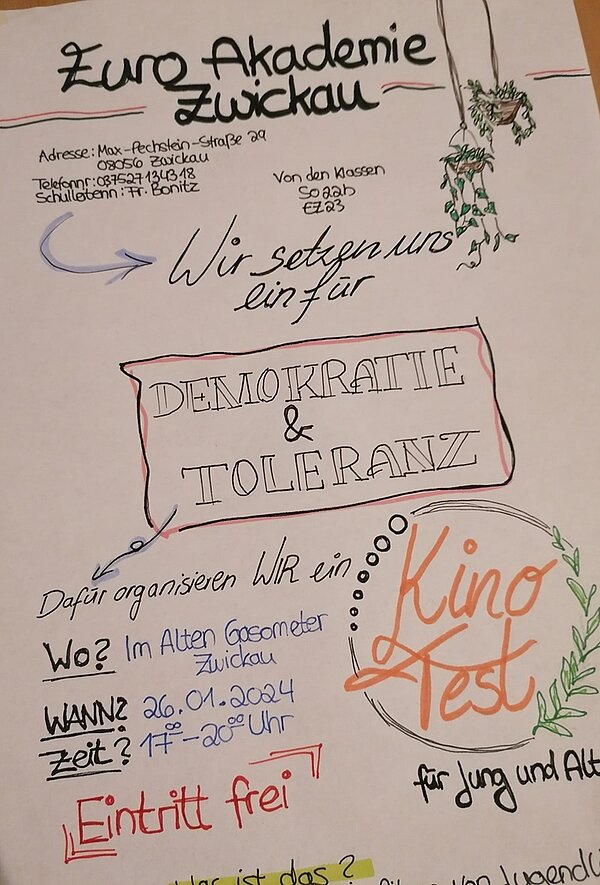 Euro Akademie
Zwickau
Adresse: Max-Pechstein-Straße 29
08056 Zwickau
Telefonnr: 037527134318
Schulleiterin: Fr. Bonitz
Von den Klassen
So22b
EZ23
Wir setzen uns
ein für
DEMOKRATIE
&
TOLERANZ
Dafür organisieren WIR ein
Kino
Fest
für Jung und Alt
Wo? Im Alten Gasometer
Zwickau
WANN? 26.01.2024
Zeit? 17⁰⁰-20⁰⁰ Uhr
Eintritt frei
ist das?
von Jugendli